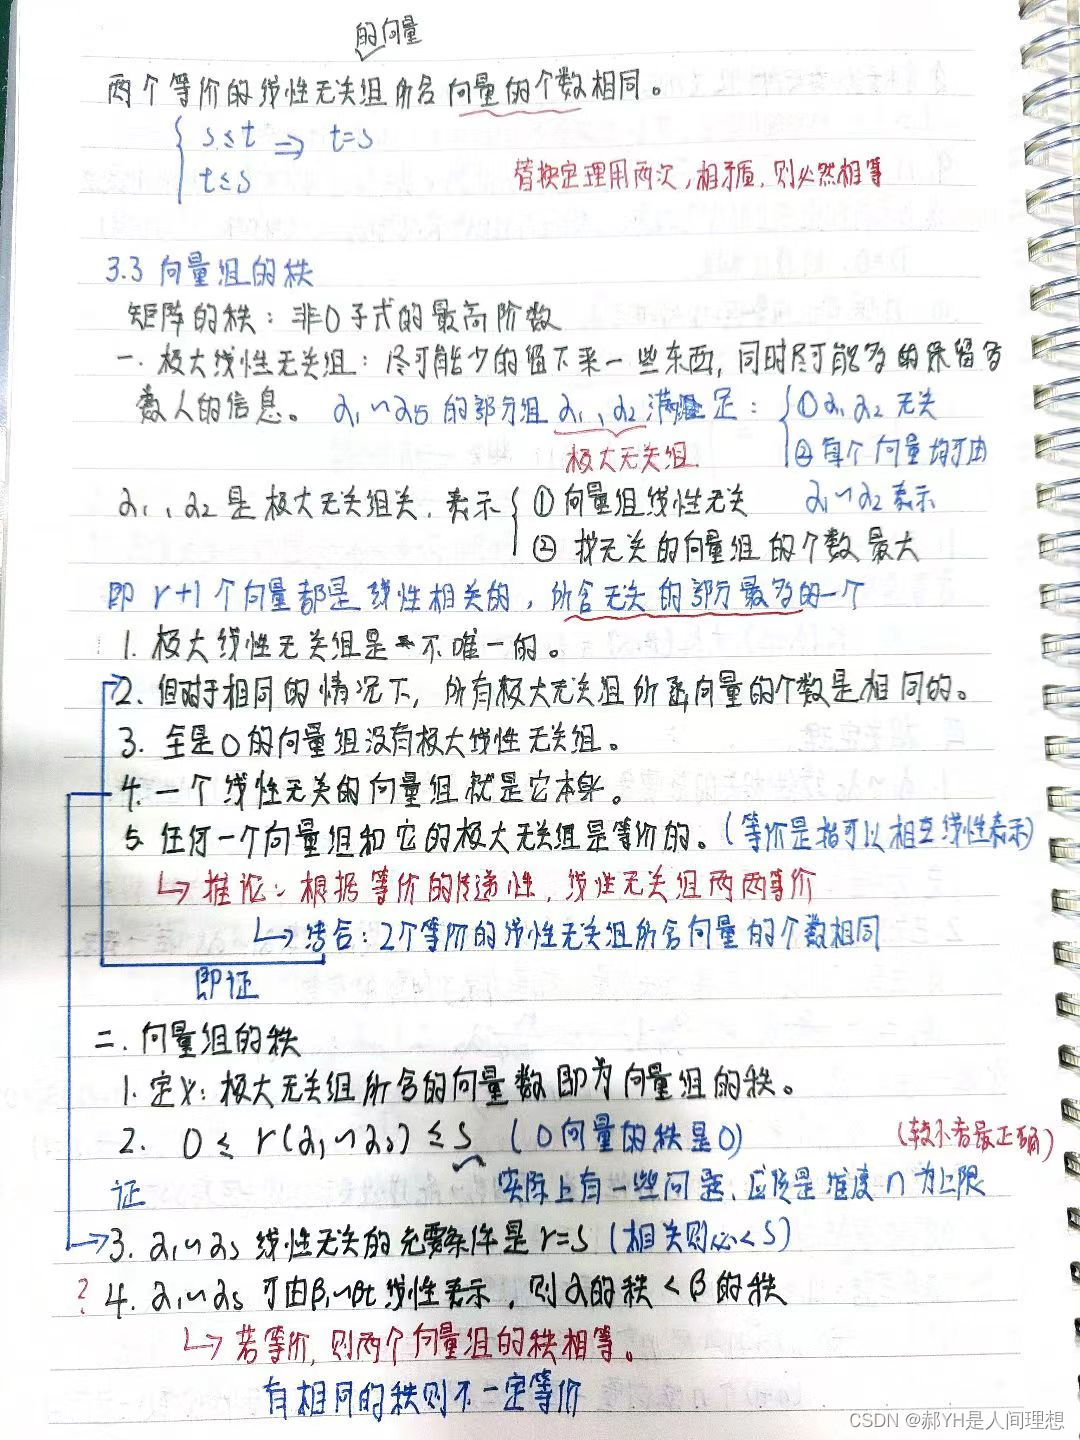 的向量
两个等价的线性无关组所含向量的个数相同。
{ s≤t ⇒ t=s
t≤s
替换定理用两次,相矛盾,则必然相等
3.3 向量组的秩
矩阵的秩:非0子式的最高阶数
一.极大线性无关组:尽可能少的留下来一些东西,同时尽可能多的保留多
数人的信息。α₁~α₅的部分组α₁、α₂满足:{①α₁α₂无关
极大无关组 ②每个向量均可由
α₁、α₂是极大无关组关,表示{①向量组线性无关 α₁~α₂表示
②找无关的向量组的个数最大
即 r+1个向量都是线性相关的,所含无关的部分最多的一个
1.极大线性无关组是不唯一的。
2.但对于相同的情况下,所有极大无关组所函向量的个数是相同的。
3.全是0的向量组没有极大线性无关组。
4.一个线性无关的向量组就是它本身。
5 任何一个向量组和它的极大无关组是等价的。(等价是指可以相互线性表示)
↳推论:根据等价的传递性,线性无关组两两等价
↳结合:2个等价的线性无关组所含向量的个数相同
即证
二.向量组的秩
1.定义:极大无关组所含的向量数即为向量组的秩。
2. 0≤r(α₁~αs)≤s (0向量的秩是0) (较小者最正确)
证 实际上有一些问题,应该是维度n为上限
3. α₁~αs线性无关的充要条件是r=s(相关则必<s)
? 4. α₁~αs可由β₁~βt线性表示,则α的秩<β的秩
↳若等价,则两个向量组的秩相等。
有相同的秩则不一定等价
CSDN @郝YH是人间理想